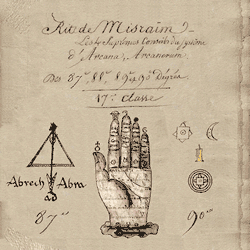 Rit de Misraïm
d'Arcana, Arcanorum
Des 87ᵐᵉ 88ᵐᵉ 89ᵉ & 90 Degrés
17ᵉ classe
Abrech Abra
87ᵐᵉ
90ᵐᵉ